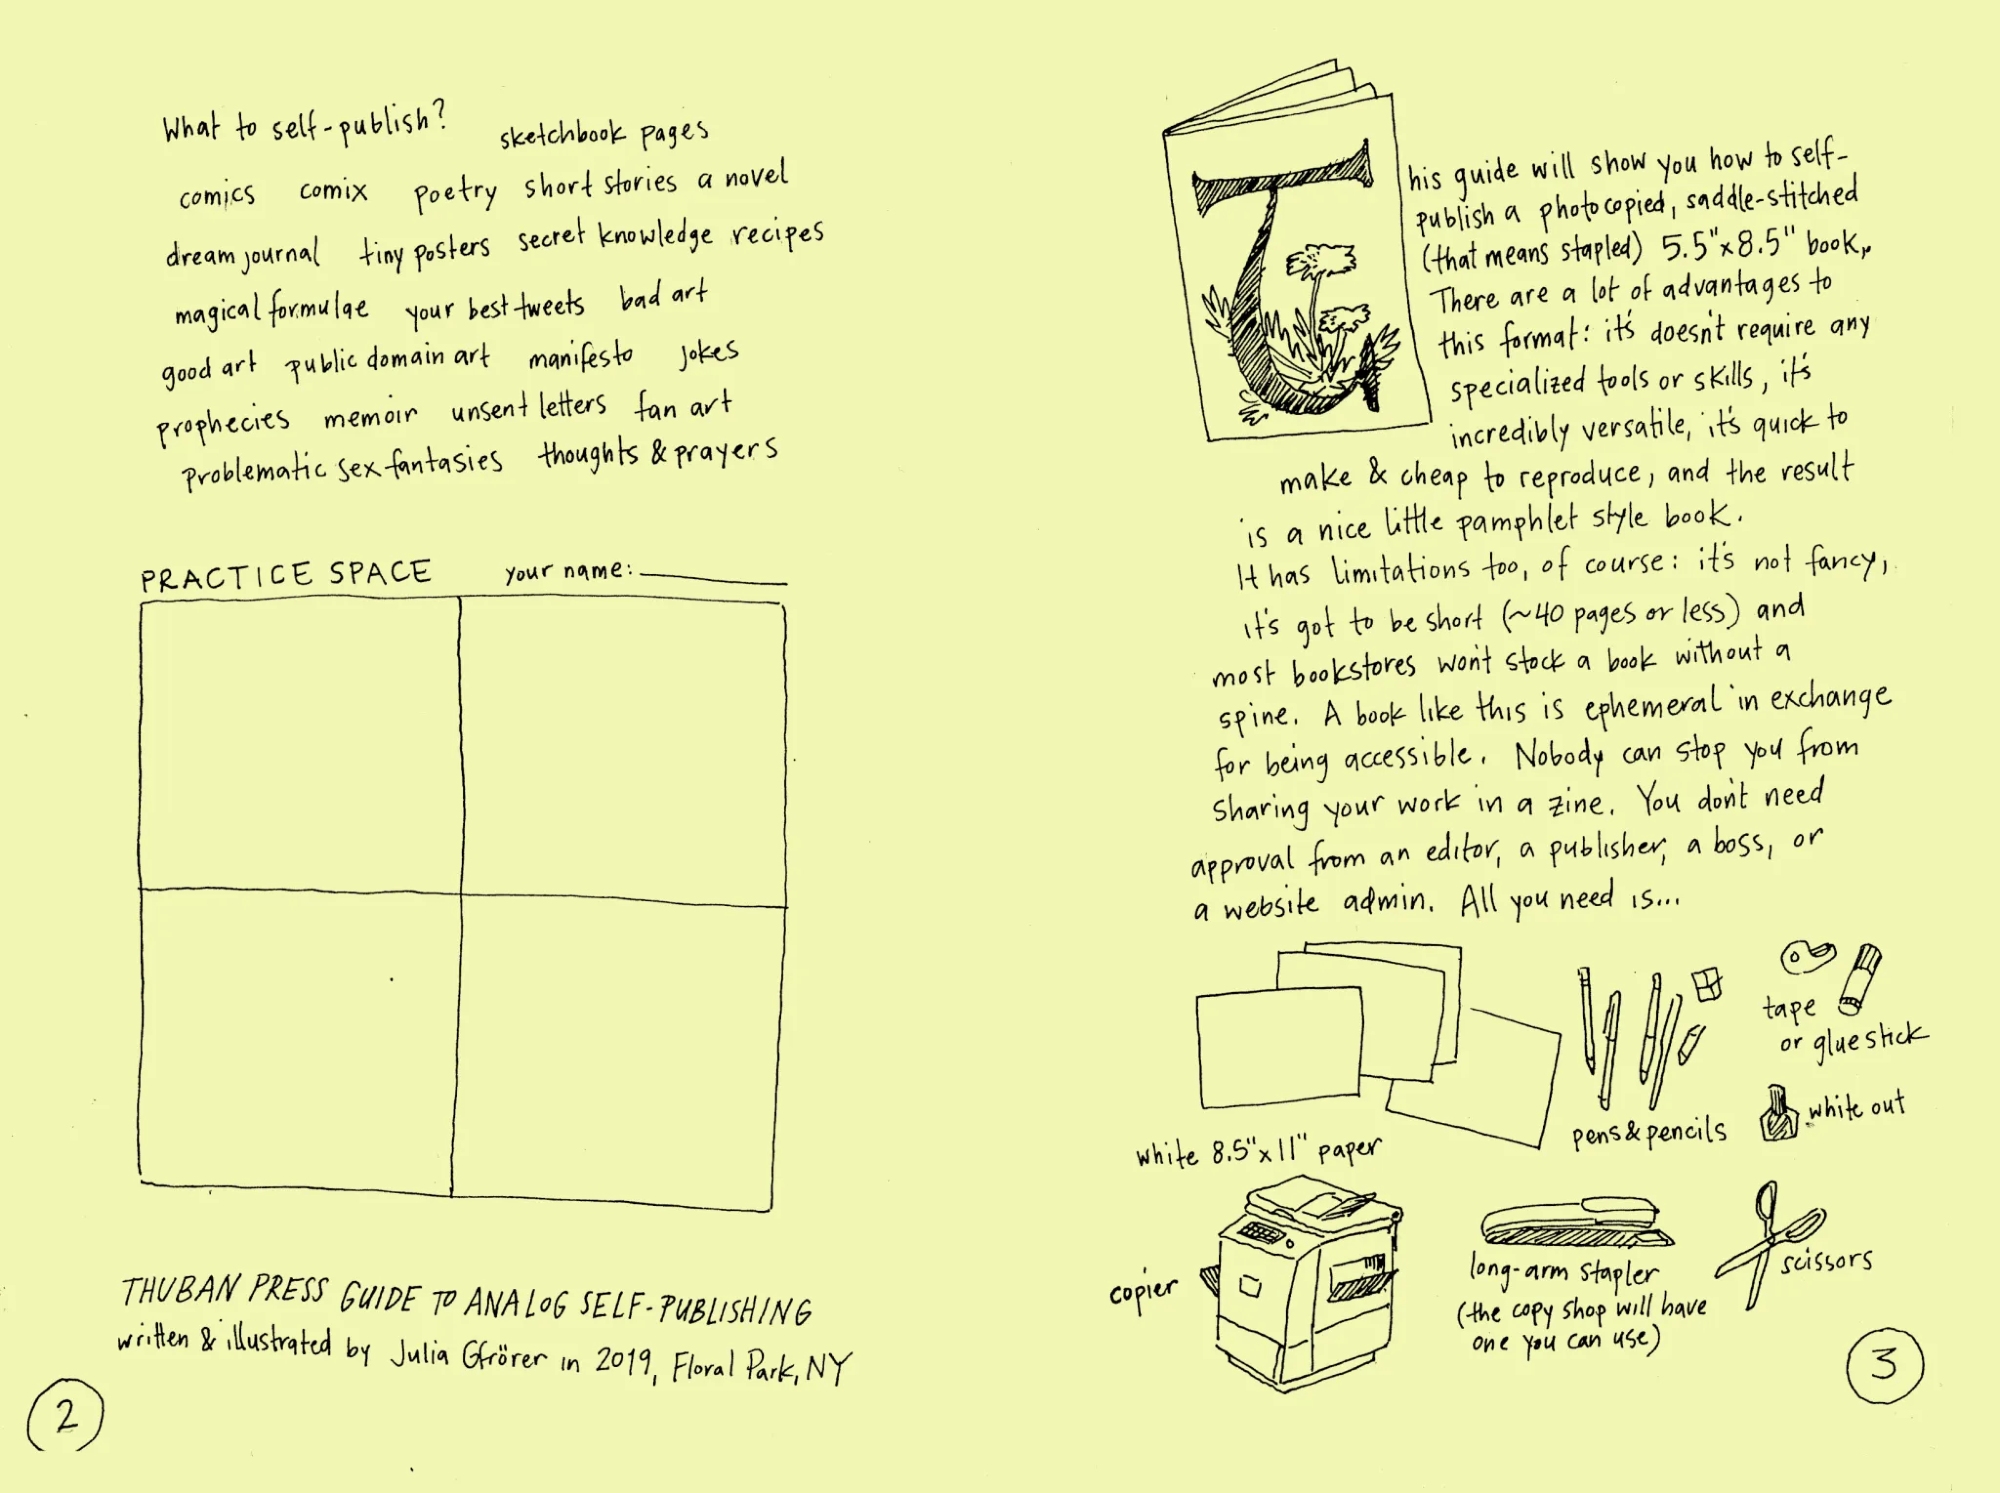 What to self-publish? sketchbook pages
comics comix poetry short stories a novel
dream journal tiny posters secret knowledge recipes
magical formulae your best tweets bad art
good art public domain art manifesto jokes
prophecies memoir unsent letters fan art
problematic sex fantasies thoughts & prayers
PRACTICE SPACE your name:
THUBAN PRESS GUIDE TO ANALOG SELF-PUBLISHING
written & illustrated by Julia Gfrörer in 2019, Floral Park, NY
2
This guide will show you how to self-
publish a photocopied, saddle-stitched
(that means stapled) 5.5"x8.5" book.
There are a lot of advantages to
this format: it's doesn't require any
specialized tools or skills, it's
incredibly versatile, it's quick to
make & cheap to reproduce, and the result
is a nice little pamphlet style book.
It has limitations too, of course: it's not fancy,
it's got to be short (~40 pages or less) and
most bookstores won't stock a book without a
spine. A book like this is ephemeral in exchange
for being accessible. Nobody can stop you from
sharing your work in a zine. You don't need
approval from an editor, a publisher, a boss, or
a website admin. All you need is...
white 8.5"x11" paper
pens & pencils
tape
or glue stick
white out
copier
long-arm stapler
(the copy shop will have
one you can use)
scissors
3